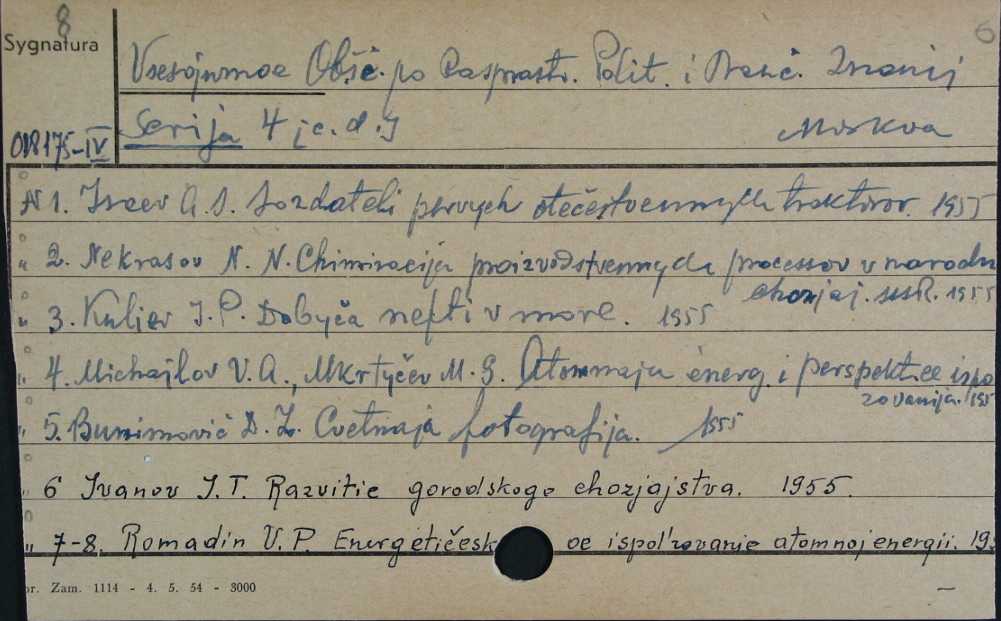 8
6
Sygnatura
Vsesojuznoe Obšč. po Rasprostr. Polit. i Nauč. Znanij
Serija 4 je. d. J
Moskva
018175-IV
N 1. Isaev A. S. Sozdateli pervych otečestvennych traktorov. 1955
" 2. Nekrasov N. N. Chimizacija proizvodstvennych processov v narodn
chozjaj. SSSR. 1955
" 3. Kuliev I. P. Dobyča nefti v more. 1955
" 4. Michajlov V. A., Mkrtyčev M. S. Atomnaja energ. i perspektive ispo
zovanija. 195
" 5. Bunimovič D. Z. Cvetnaja fotografija. 1955
" 6 Ivanov I. T. Razvitie gorodskogo chozjajstva. 1955.
" 7-8. Romadin V. P. Energetičesk oe ispol'zovanie atomnoj energii. 195
or. Zam. 1114 - 4. 5. 54 - 3000